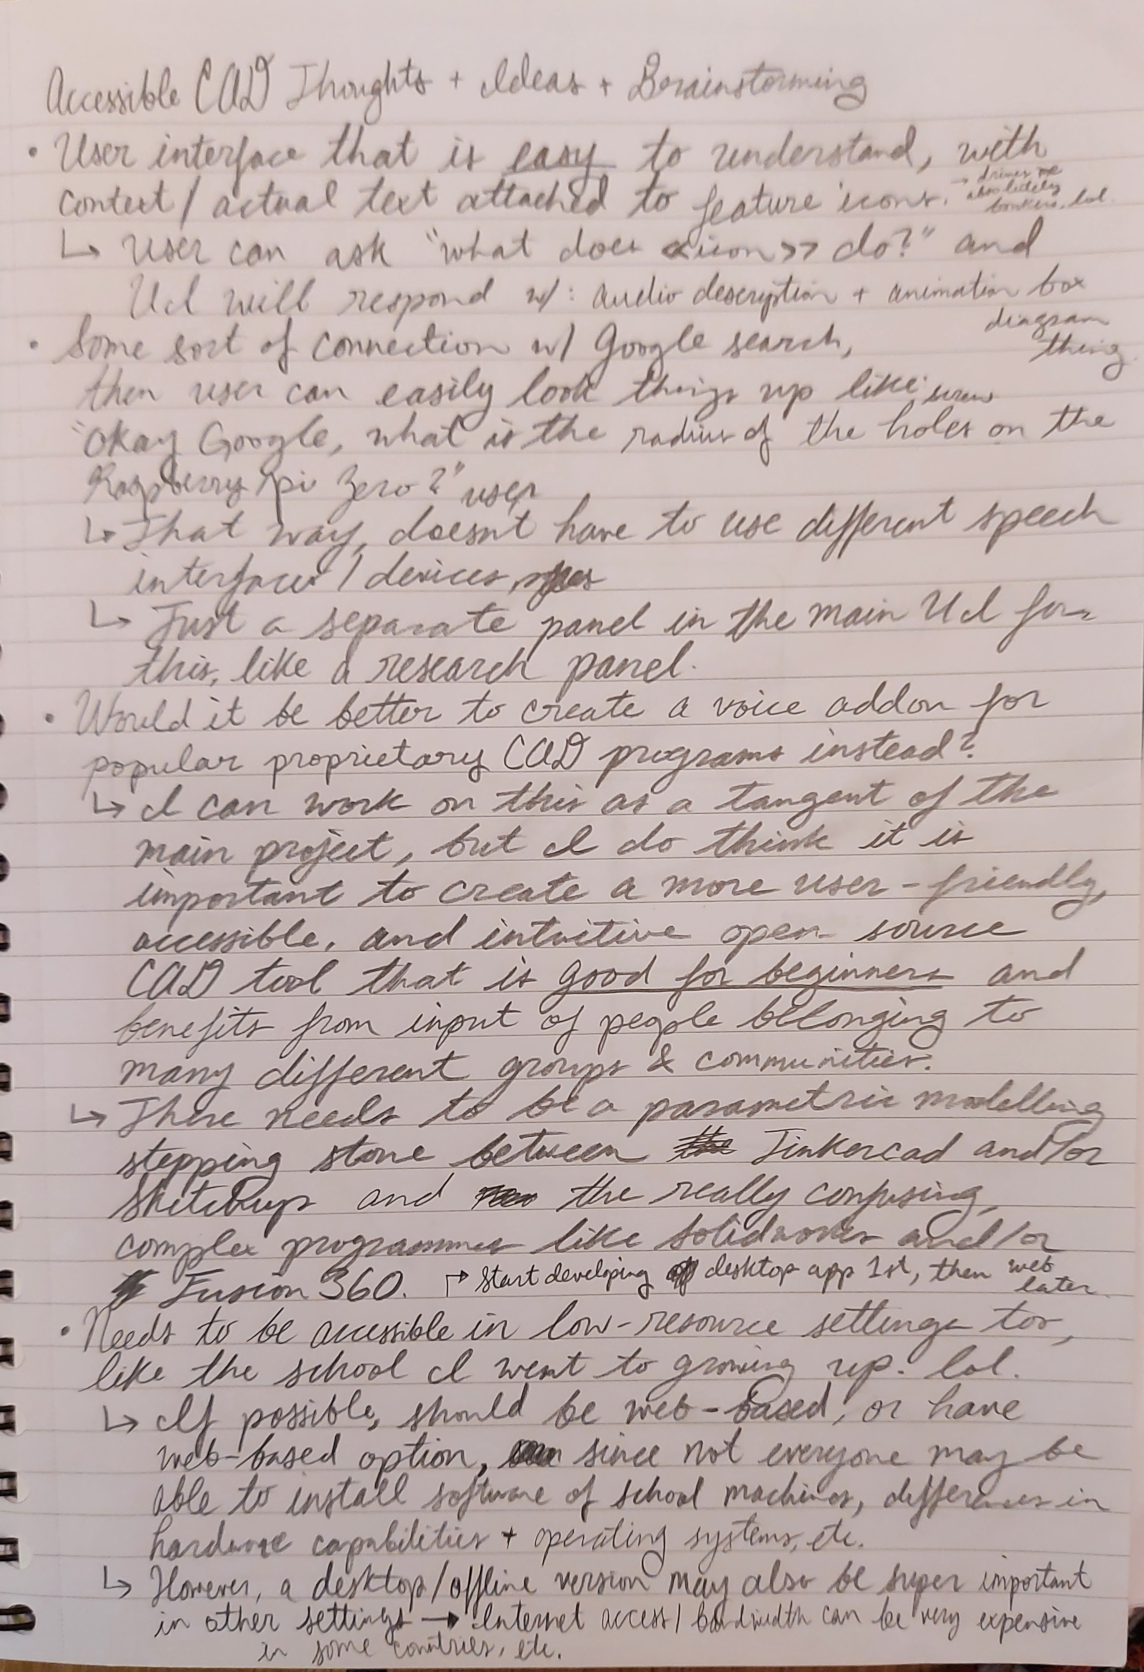 Accessible CAD Thoughts + Ideas + Brainstorming
• User interface that is easy to understand, with
context / actual text attached to feature icons. → drives me
absolutely
bonkers, lol.
↳ User can ask "what does <<icon>> do?" and
UI will respond w/: audio description + animation box
diagram
thing
• Some sort of connection w/ Google search,
then user can easily look things up like: screw
"Okay Google, what is the radius of the holes on the
Raspberry Pi Zero?" user
↳ That way, doesn't have to use different speech
interfaces / devices,
↳ Just a separate panel in the main UI for
this, like a research panel.
• Would it be better to create a voice addon for
popular proprietary CAD programs instead?
↳ I can work on this as a tangent of the
main project, but I do think it is
important to create a more user-friendly,
accessible, and intuitive open source
CAD tool that is good for beginners and
benefits from input of people belonging to
many different groups & communities.
↳ There needs to be a parametric modelling
stepping stone between the Tinkercad and/or
Sketchup and the really confusing,
complex programmes like Solidworks and/or
Fusion 360. ↱ Start developing desktop app 1st, then web
later.
• Needs to be accessible in low-resource settings too,
like the school I went to growing up. lol.
↳ If possible, should be web-based, or have
web-based option, since not everyone may be
able to install software of school machines, differences in
hardware capabilities + operating systems, etc.
↳ However, a desktop/offline version may also be super important
in other settings → Internet access / bandwidth can be very expensive
in some countries, etc.